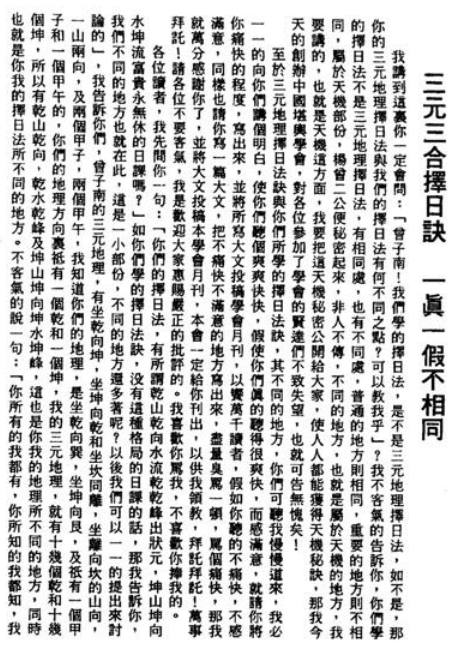 三元三合擇日訣　一眞一假不相同
我講到這裏你一定會問：「曾子南！我們學的擇日法，是不是三元地理擇日法，如不是，那
你的三元地理擇日法與我們的擇日法有何不同之點？可以教我乎」？我不客氣的告訴你，你們學
的擇日法不是三元地理擇日法，有相同處，也有不同處，普通的地方則相同，重要的地方則不相
同，屬於天機部份，楊曾二公便秘密起來，非人不傳，不同的地方，也就是屬於天機的地方，我
要講的，也就是天機這方面，我要把這天機秘密公開給大家，使人人都能獲得天機秘訣，那我今
天的創辦中國堪輿學會，對各位參加了學會的賢達們不致失望，也就可告無愧矣！
至於三元地理擇日法訣與你們所學的擇日法訣，其不同的地方，你們可聽我慢慢道來，我必
一一的向你們講個明白，使你們聽個爽爽快快，假使你們眞的聽得很爽快，而感滿意，就請你將
你痛快的程度，寫出來，並將所寫大文投稿學會月刊，以饗萬千讀者，假如你聽的不痛快，不感
滿意，同樣也請你寫一篇大文，把不痛快不滿意的地方寫出來，盡量臭罵一頓，罵個痛快，那我
就萬分感謝你了，並將大文投稿本學會月刊，本會一定給你刊出，以供我領教，拜託拜託！萬事
拜託！請各位不要客氣，我是歡迎大家惠賜嚴正的批評的。我喜歡你罵我，不喜歡你捧我的。
各位讀者，我先問你一句：「你們的擇日法，有所謂乾山乾向水流乾乾峰出狀元，坤山坤向
水坤流富貴永無休的日課嗎？」如你們學的擇日法訣，沒有這種格局的日課的話，那我告訴你，
我們不同的地方也就在此，這是一小部份，不同的地方還多著呢？以後我們可以一一的提出來討
論的」，我告訴你們，曾子南的三元地理，有坐乾向坤，坐坤向乾和坐坎向離，坐離向坎的山向，
一山兩向，及兩個甲子，兩個甲午，我知道你們的地理，是坐乾向巽，坐坤向艮，及祗有一個甲
子和一個甲午的，你們的地理方向裏祗有一個乾和一個坤，我的三元地理，就有十幾個乾和十幾
個坤，所以有乾山乾向，乾水乾峰及坤山坤向坤水坤峰，這也是你我的地理所不同的地方，同時
也就是你我的擇日法所不同的地方。不客氣的說一句：「你所有的我都有，你所知的我都知，我